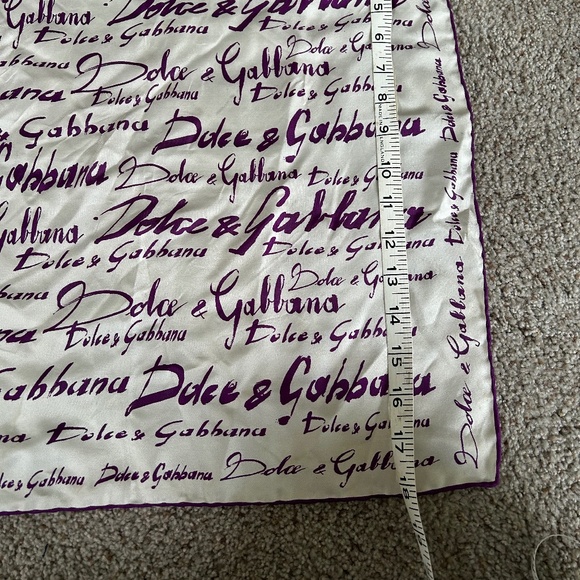 Gabbana Dolce & Gabbana
Dolce & Gabbana
Gabbana Dolce & Gabbana Dolce & Gabbana
Dolce & Gabbana
Gabbana Dolce & Gabbana
Gabbana Dolce & Gabbana Dolce & Gabbana
Gabbana Dolce & Gabbana
Dolce & Gabbana Dolce & Gabbana
Dolce & Gabbana
Dolce & Gabbana
Dolce & Gabbana Dolce & Gabbana
Gabbana Dolce & Gabbana
Dolce & Gabbana Dolce & Gabbana
Gabbana Dolce & Gabbana Dolce & Gabbana
Dolce & Gabbana
Dolce & Gabbana
Dolce & Gabbana
5
6
7
8
9
10
11
12
13
14
15
16
17
18